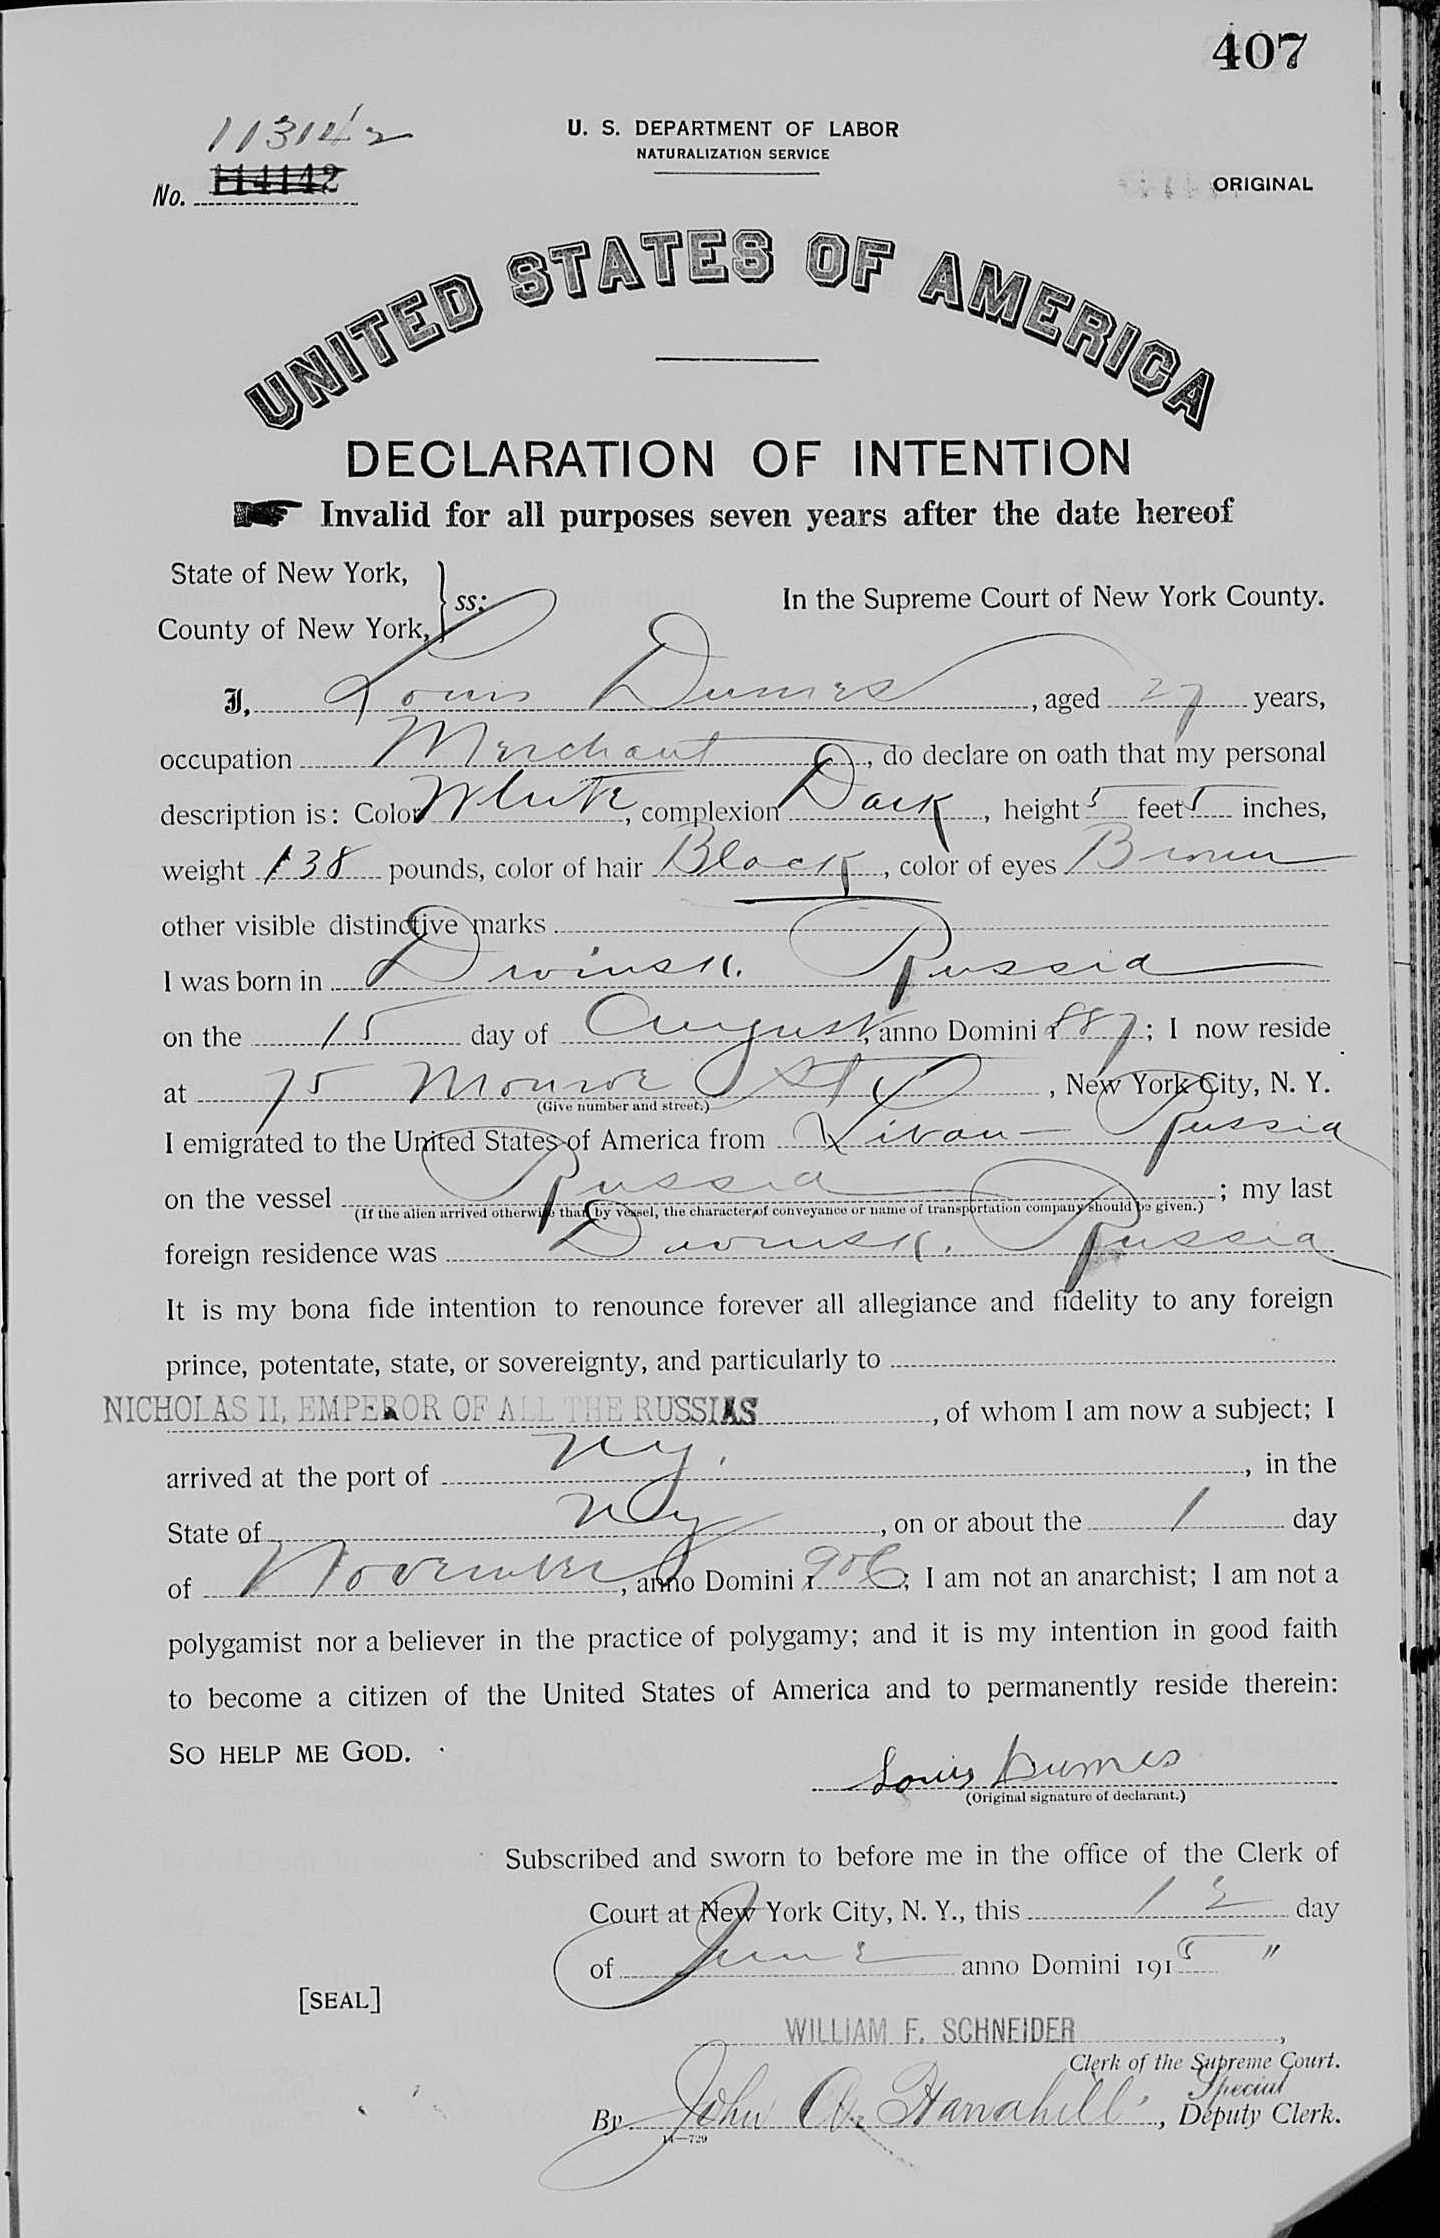 407
113142
U. S. DEPARTMENT OF LABOR
NATURALIZATION SERVICE
No. 114142
ORIGINAL
UNITED STATES OF AMERICA
DECLARATION OF INTENTION
Invalid for all purposes seven years after the date hereof
State of New York,
County of New York, } ss:
In the Supreme Court of New York County.
I, Louis Dumes, aged 27 years,
occupation Merchant, do declare on oath that my personal
description is: Color White, complexion Dark, height 5 feet 5 inches,
weight 138 pounds, color of hair Black, color of eyes Brown
other visible distinctive marks
I was born in Dwinsk. Russia
on the 15 day of August, anno Domini 1887; I now reside
at 75 Monroe St, New York City, N. Y.
(Give number and street.)
I emigrated to the United States of America from Libau - Russia
on the vessel Russia; my last
(If the alien arrived otherwise than by vessel, the character of conveyance or name of transportation company should be given.)
foreign residence was Dwinsk. Russia
It is my bona fide intention to renounce forever all allegiance and fidelity to any foreign
prince, potentate, state, or sovereignty, and particularly to
NICHOLAS II, EMPEROR OF ALL THE RUSSIAS, of whom I am now a subject; I
arrived at the port of NY., in the
State of NY, on or about the 1 day
of November, anno Domini 1906; I am not an anarchist; I am not a
polygamist nor a believer in the practice of polygamy; and it is my intention in good faith
to become a citizen of the United States of America and to permanently reside therein:
SO HELP ME GOD.
Louis Dumes
(Original signature of declarant.)
Subscribed and sworn to before me in the office of the Clerk of
Court at New York City, N. Y., this 12 day
of June anno Domini 1915 "
[SEAL]
WILLIAM F. SCHNEIDER,
Clerk of the Supreme Court.
Special
By John Hanahill, Deputy Clerk.
14—729